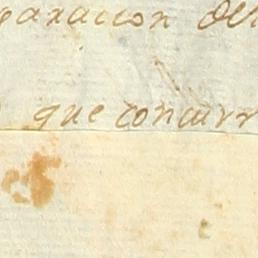 paracion del
que concurr